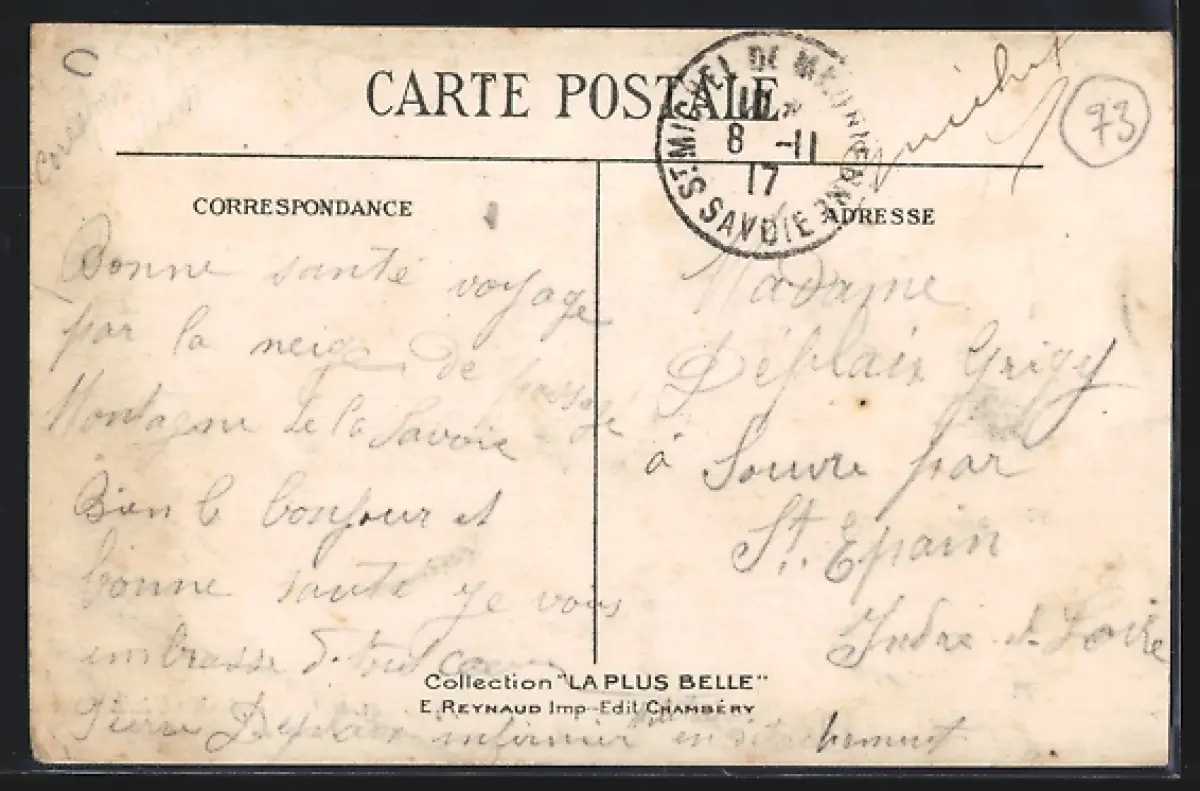 CARTE POSTALE
ST MICHEL DE MAURIENNE
8 -11
17
SAVOIE
73
CORRESPONDANCE
ADRESSE
Bonne santé voyage
par la neige de passage
Montagne de la Savoie
Bien le bonjour et
bonne santé je vous
embrasse de tout coeur
Pierre infirmier en
Madame
Déplaix
à Souvre par
St. Epain
Indre et Loire
Collection "LA PLUS BELLE"
E. REYNAUD Imp-Edit CHAMBÉRY